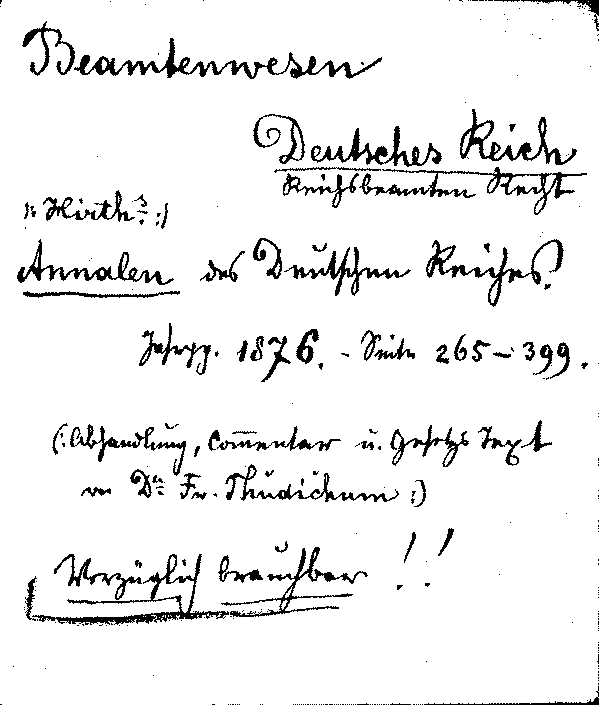 Beamtenwesen
Deutsches Reich
Reichsbeamten Recht
Hirth's :/
Annalen des Deutschen Reiches.
Jahrgg. 1876. - Seite 265–399.
(: Abhandlung, Commentar u. Gesetzs Text
von Dr. Fr. Thudichum :)
Vorzüglich brauchbar !!